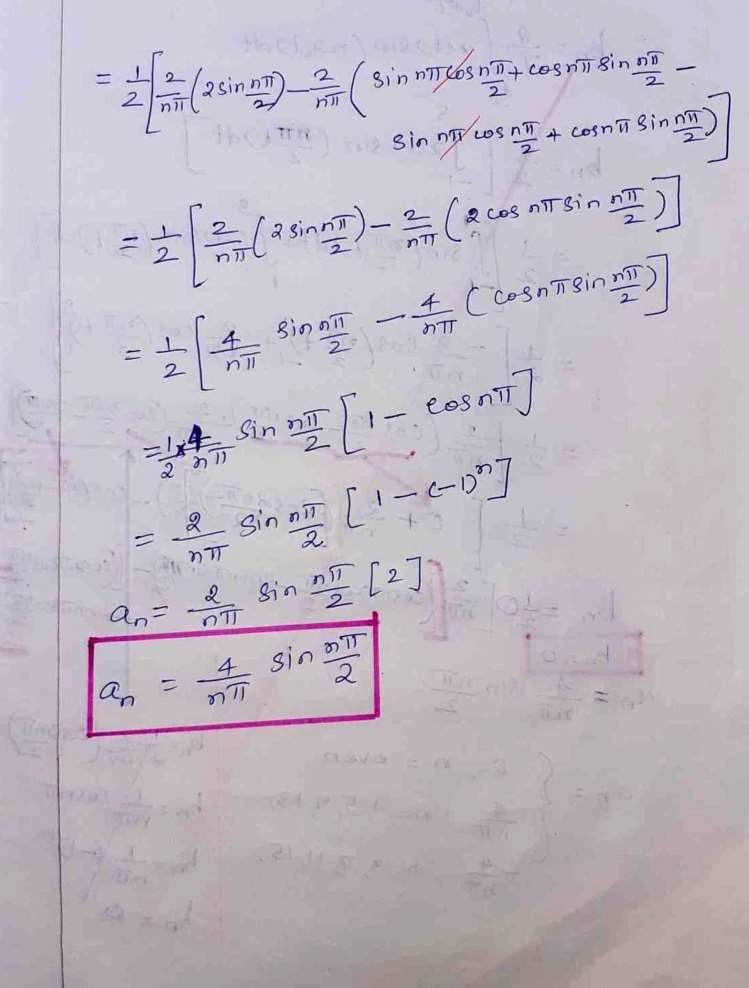 = 1/2 [ 2/nπ (2 sin nπ/2) − 2/nπ ( sin nπ cos nπ/2 + cos nπ sin nπ/2 −
sin nπ cos nπ/2 + cos nπ sin nπ/2 ) ]
= 1/2 [ 2/nπ (2 sin nπ/2) − 2/nπ ( 2 cos nπ sin nπ/2 ) ]
= 1/2 [ 4/nπ sin nπ/2 − 4/nπ ( cos nπ sin nπ/2 ) ]
= 1/2 × 4/nπ sin nπ/2 [ 1 − cos nπ ]
= 2/nπ sin nπ/2 [ 1 − (−1)ⁿ ]
aₙ = 2/nπ sin nπ/2 [2]
aₙ = 4/nπ sin nπ/2